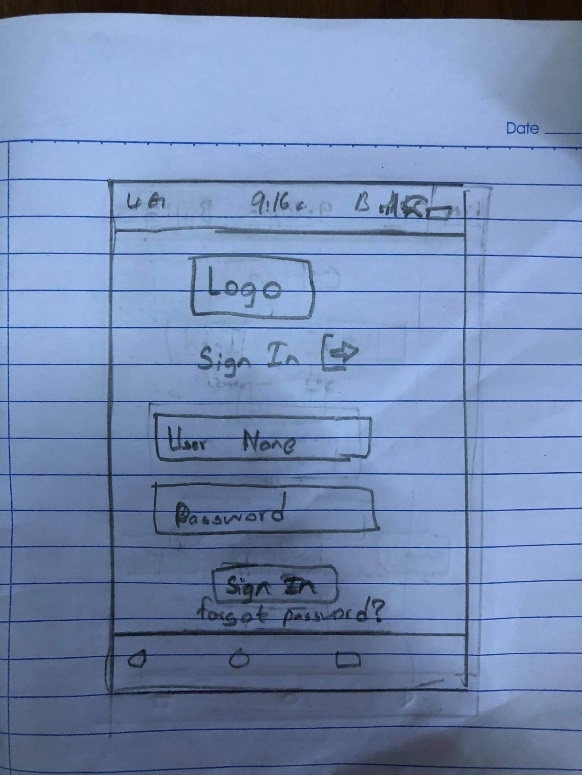 Date
9:16
Logo
Sign In
User Name
Password
Sign In
forgot password?